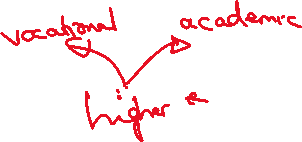 vocational academic
higher e